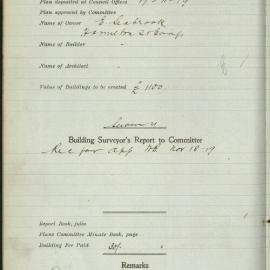 Plan deposited at Council Offices
Plan approved by Committee
Name of Owner E. Seabrook
Hamilton St Coog
Name of Builder "
Name of Architect "
Value of Buildings to be erected £ 1100
Building Surveyor's Report to Committee
Rec for app Nov 18-19
Report Book, folio
Plans Committee Minute Book, page
Building Fee Paid 30/-
Remarks